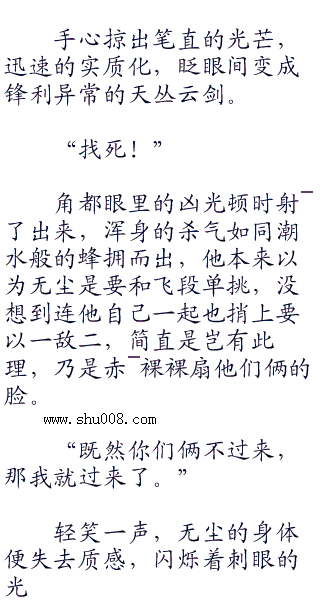 手心掠出笔直的光芒，
迅速的实质化，眨眼间变成
锋利异常的天丛云剑。
“找死！”
角都眼里的凶光顿时射¯
了出来，浑身的杀气如同潮
水般的蜂拥而出，他本来以
为无尘是要和飞段单挑，没
想到连他自己一起也捎上要
以一敌二，简直是岂有此
理，乃是赤¯裸裸扇他们俩的
脸。
www.shu008.com
“既然你们俩不过来，
那我就过来了。”
轻笑一声，无尘的身体
便失去质感，闪烁着刺眼的
光